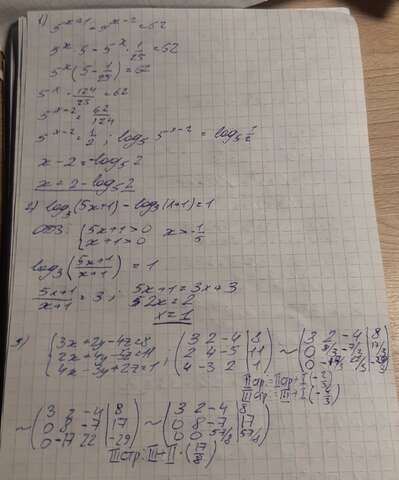 1) 5^{x+1} - 5^{x-2} = 62
5^x · 5 - 5^x · 1/25 = 62
5^x (5 - 1/25) = 62
5^x · 124/25 = 62
5^{x-2} = 62/124
5^{x-2} = 1/2 ; log_5 5^{x-2} = log_5 1/2
x - 2 = -log_5 2
x = 2 - log_5 2
2) log_3 (5x+1) - log_3 (x+1) = 1
ОДЗ: { 5x+1>0 x+1>0 x > -1/5
log_3 ((5x+1)/(x+1)) = 1
(5x+1)/(x+1) = 3 ; 5x+1 = 3x+3
2x = 2
x = 1
3) { 3x+2y-4z=8 2x+4y-5z=11 4x-3y+2z=1 ; (3 2 -4 | 8
2 4 -5 | 11
4 -3 2 | 1) ~ (3 2 -4 | 8
0 8/3 -7/3 | 17/3
0 -17/3 22/3 | -29/3)
II стр.= II стр + I (-2/3)
III стр.= III + I (-4/3)
~ (3 2 -4 | 8
0 8 -7 | 17
0 -17 22 | -29) ~ (3 2 -4 | 8
0 8 -7 | 17
0 0 57/8 | 57/8)
III стр: III + II · (17/8)